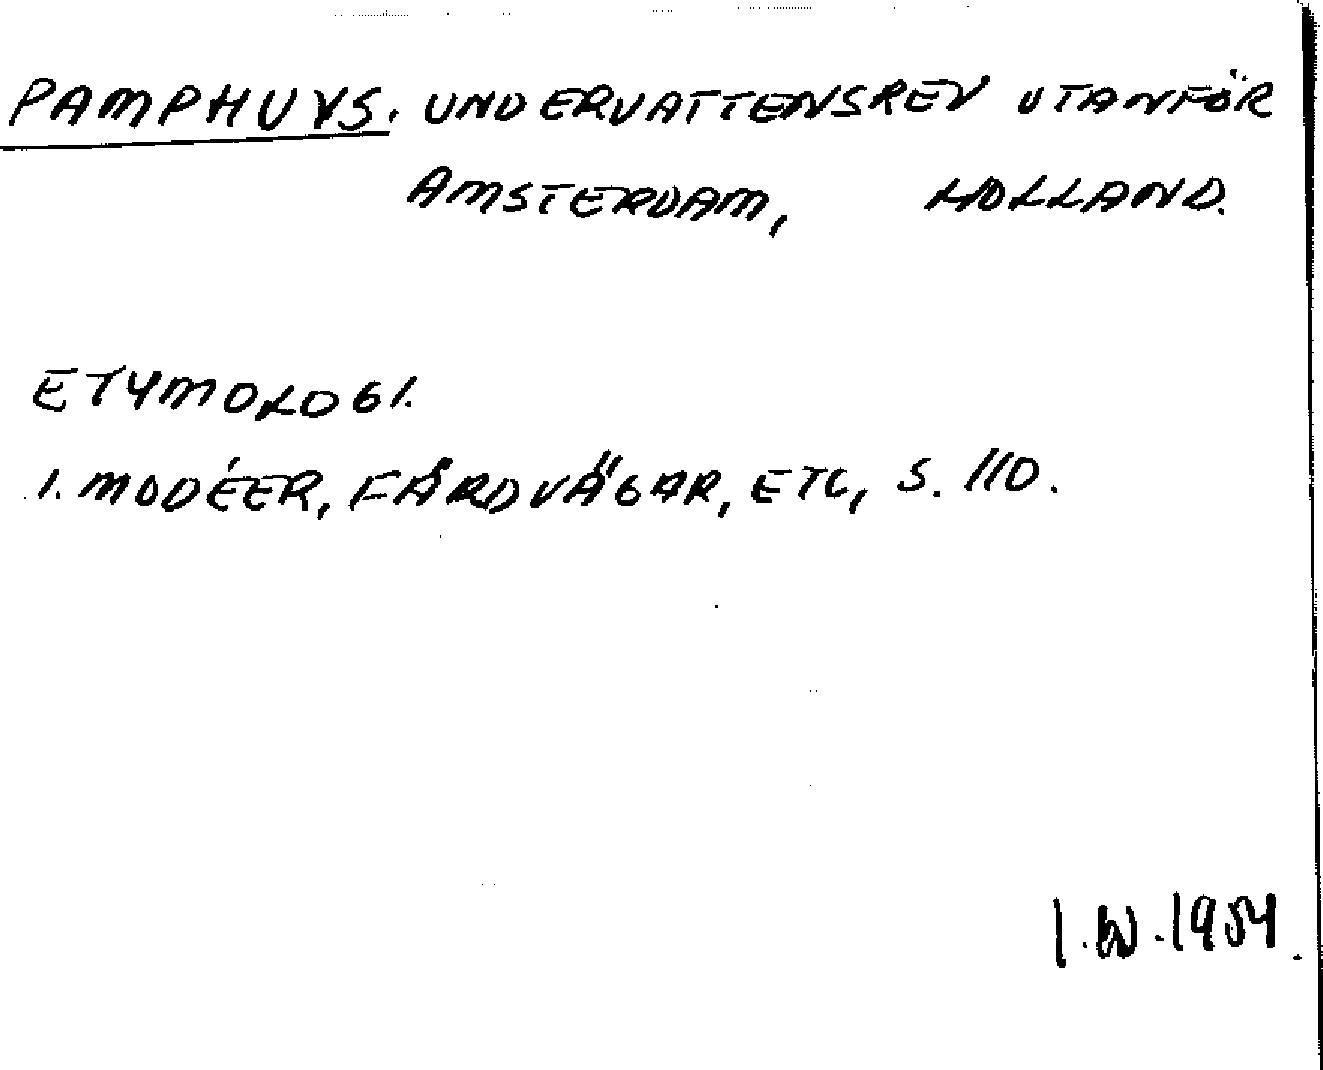 PAMPHUYS. UNDERVATTENSREV UTANFÖR
AMSTERDAM, HOLLAND.
ETYMOLOGI.
I. MODÉER, FÄRDVÄGAR, ETC, S. 110.
I.W.1954.